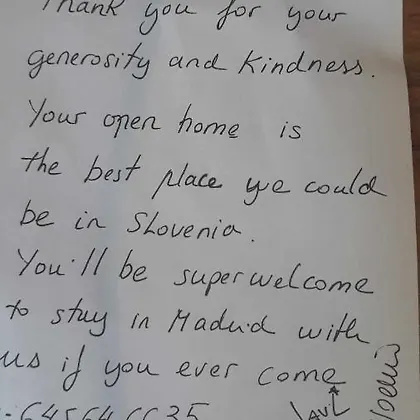 Thank you for your
generosity and kindness.
Your open home is
the best place we could
be in Slovenia.
You'll be super welcome
to stay in Madrid with
us if you ever come